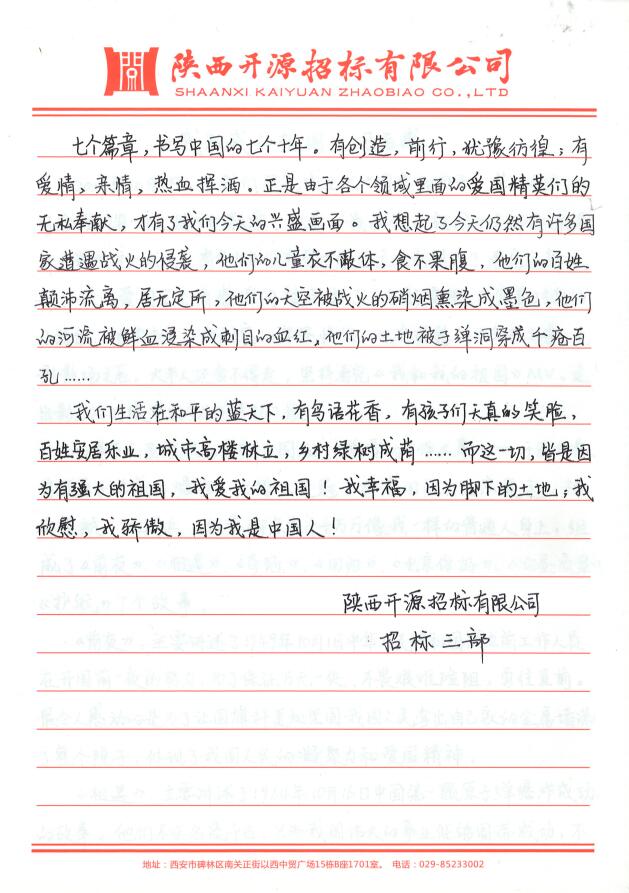 陕西开源招标有限公司
SHAANXI KAIYUAN ZHAOBIAO CO.,LTD
七个篇章，书写中国的七个十年。有创造，前行，犹豫彷徨；有
爱情，亲情，热血挥洒。正是由于各个领域里面的爱国精英们的
无私奉献，才有了我们今天的兴盛画面。我想起了今天仍然有许多国
家遭遇战火的侵袭，他们的儿童衣不蔽体，食不果腹，他们的百姓
颠沛流离，居无定所，他们的天空被战火的硝烟熏染成墨色，他们
的河流被鲜血浸染成刺目的血红，他们的土地被子弹洞穿成千疮百
孔……
我们生活在和平的蓝天下，有鸟语花香，有孩子们天真的笑脸，
百姓安居乐业，城市高楼林立，乡村绿树成荫……而这一切，皆是因
为有强大的祖国，我爱我的祖国！我幸福，因为脚下的土地；我
欣慰，我骄傲，因为我是中国人！
陕西开源招标有限公司
招标三部
地址：西安市碑林区南关正街以西中贸广场15栋B座1701室。 电话：029-85233002